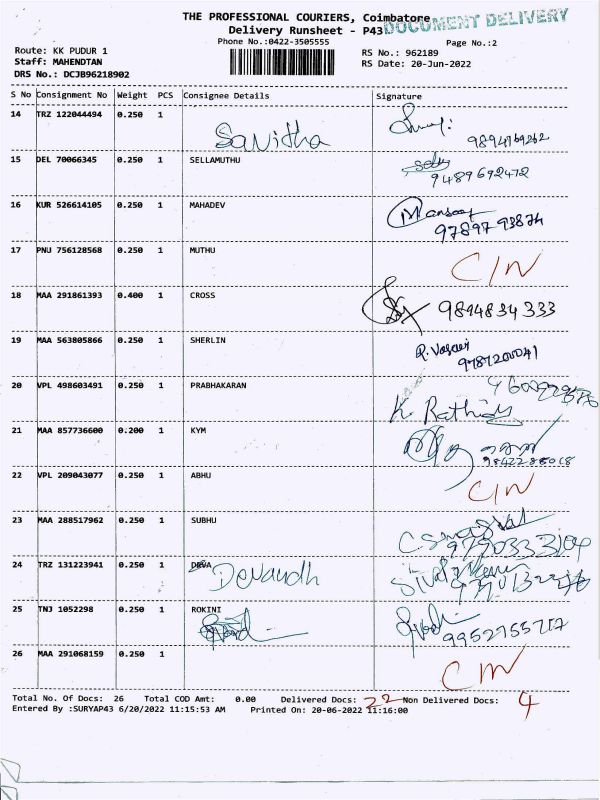 THE PROFESSIONAL COURIERS, Coimbatore
DOCUMENT DELIVERY
Delivery Runsheet - P43
Phone No.:0422-3505555
Page No.:2
Route: KK PUDUR 1
RS No.: 962189
Staff: MAHENDTAN
RS Date: 20-Jun-2022
DRS No.: DCJB96218902
S No Consignment No Weight PCS Consignee Details Signature
14 TRZ 122044494 0.250 1
Sanitha
9894769262
15 DEL 70066345 0.250 1 SELLAMUTHU
9489692472
16 KUR 526614105 0.250 1 MAHADEV
Mansoor
97897 93874
17 PNU 756128568 0.250 1 MUTHU
C/N
18 MAA 291861393 0.400 1 CROSS
9894834333
19 MAA 563805866 0.250 1 SHERLIN
R. Vasavi
9787200041
20 VPL 498603491 0.250 1 PRABHAKARAN
K
21 MAA 857736600 0.200 1 KYM
9842288018
22 VPL 209043077 0.250 1 ABHU
C/N
23 MAA 288517962 0.250 1 SUBHU
9790333104
24 TRZ 131223941 0.250 1 DEVA
Devandh
25 TNJ 1052298 0.250 1 ROKINI
9952755717
26 MAA 291068159 0.250 1
C/N
Total No. Of Docs: 26 Total COD Amt: 0.00 Delivered Docs: 22 Non Delivered Docs: 4
Entered By :SURYAP43 6/20/2022 11:15:53 AM Printed On: 20-06-2022 11:16:00